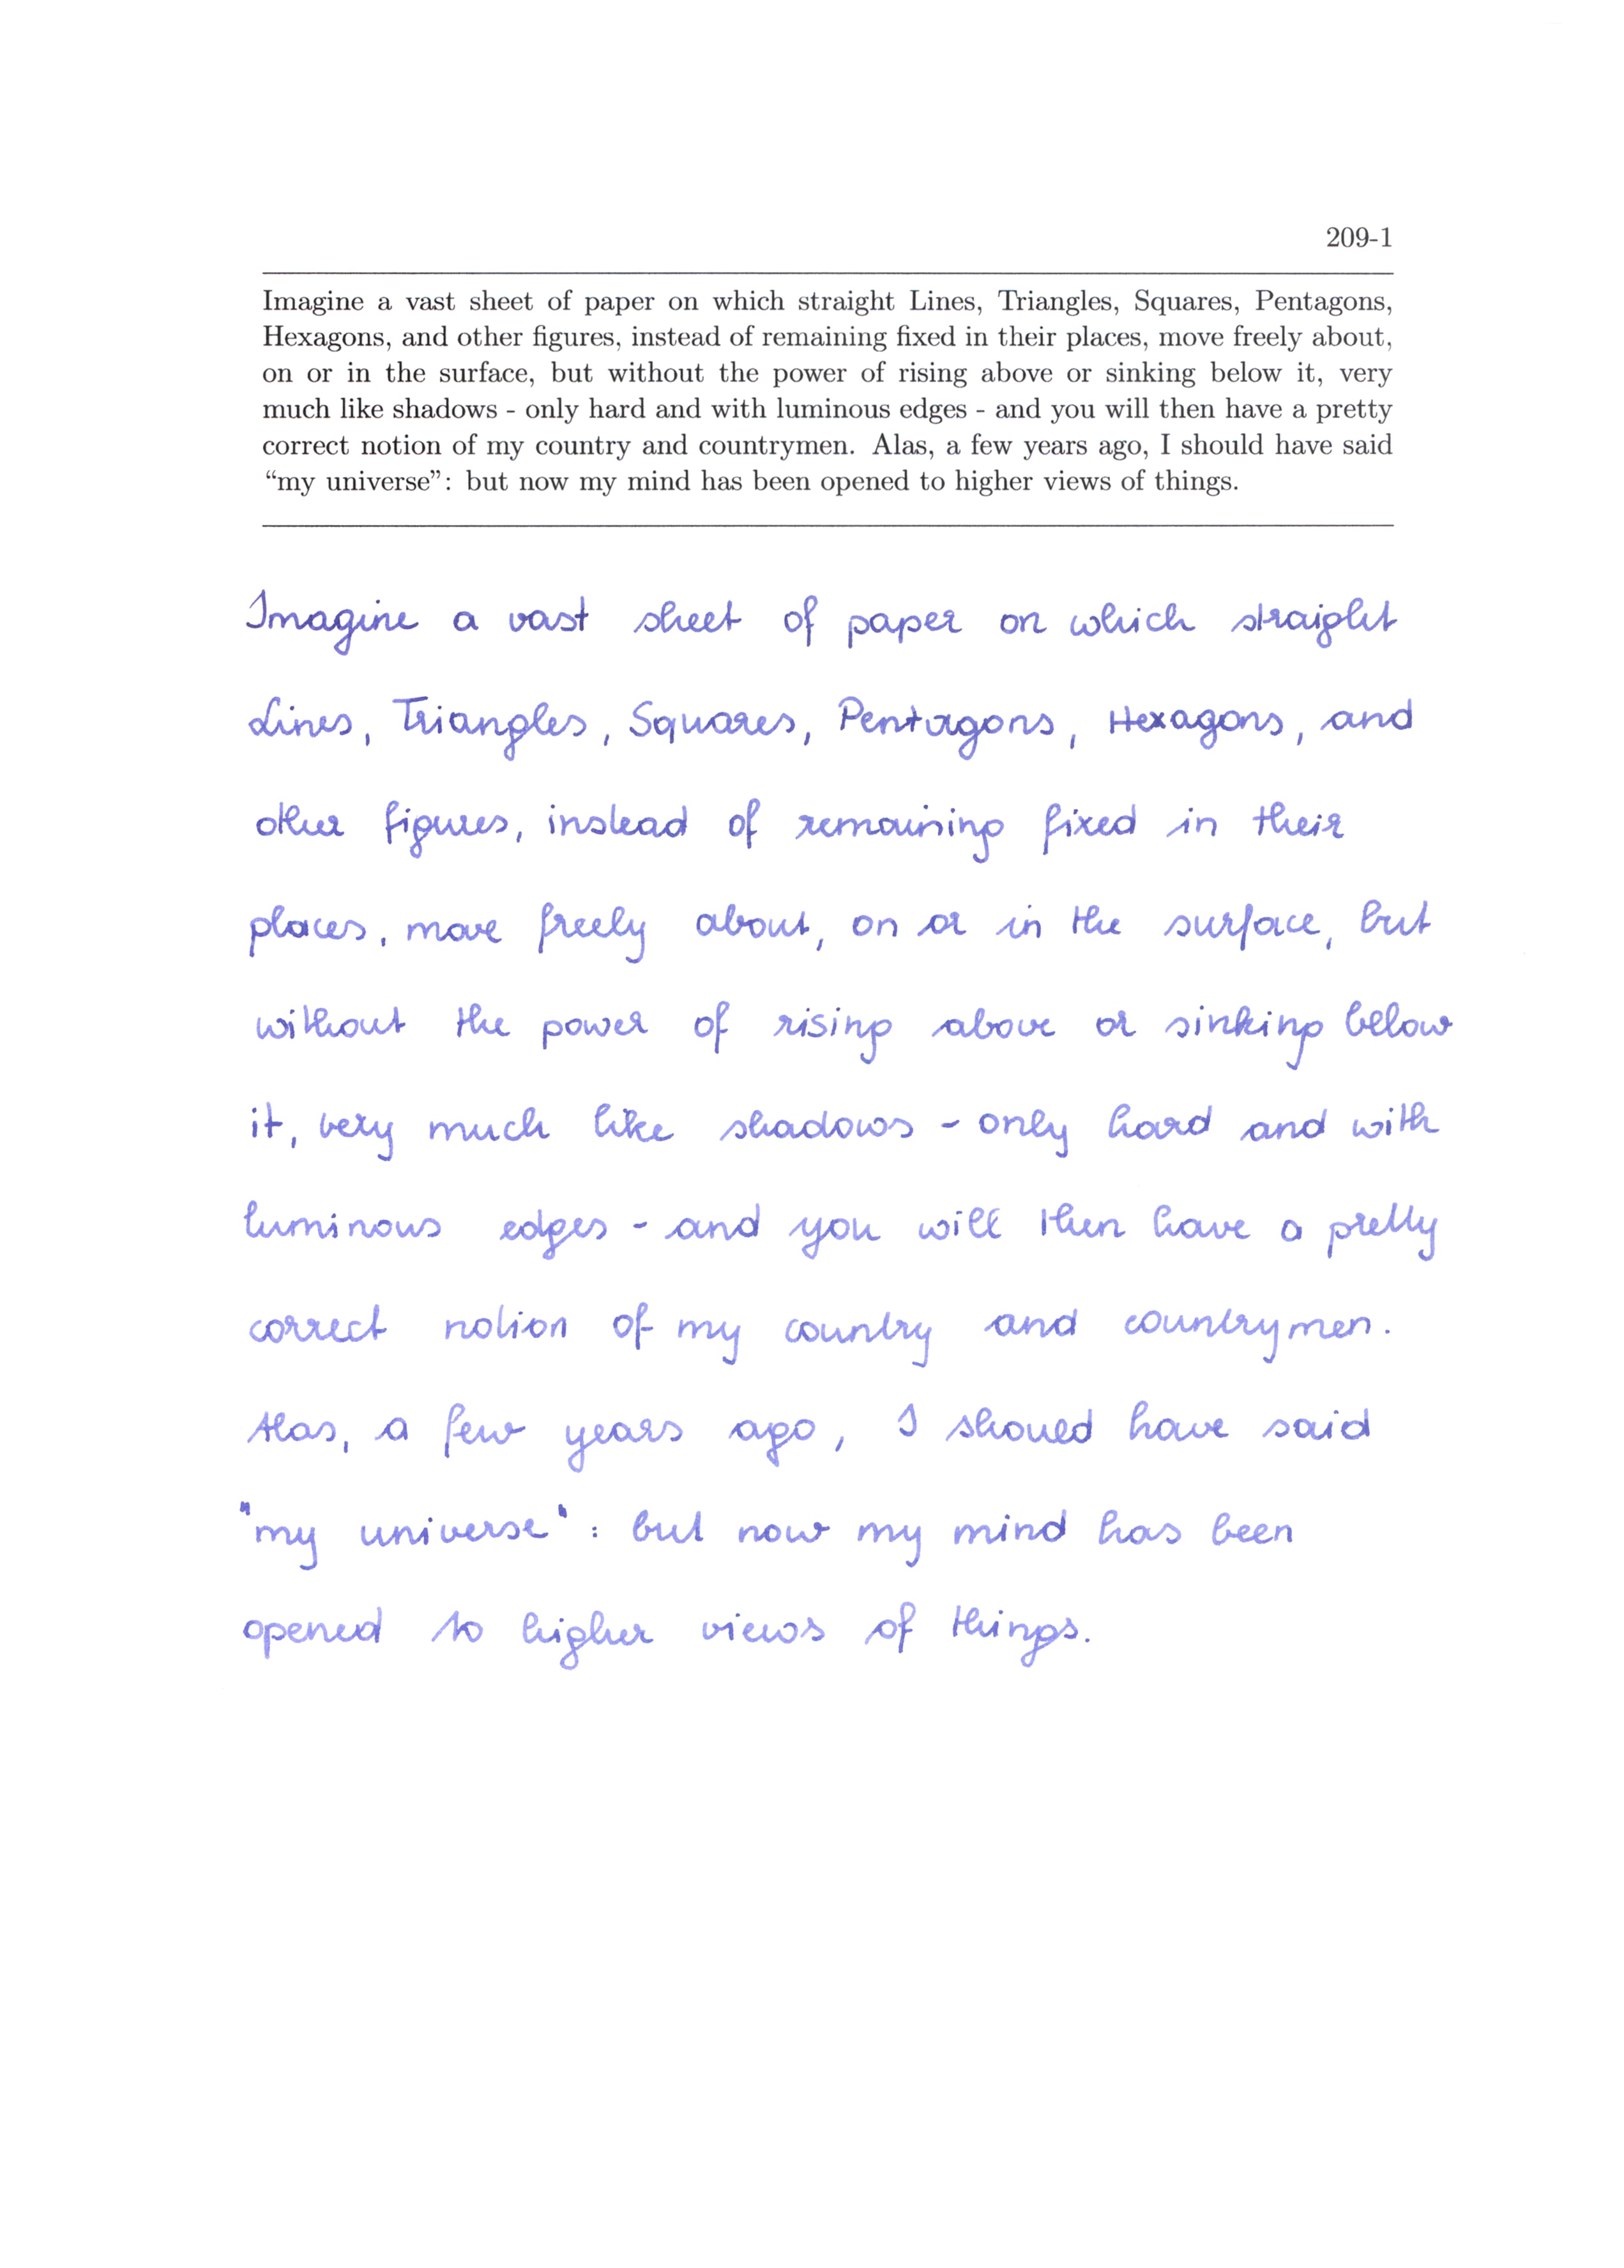 209-1
Imagine a vast sheet of paper on which straight Lines, Triangles, Squares, Pentagons,
Hexagons, and other figures, instead of remaining fixed in their places, move freely about,
on or in the surface, but without the power of rising above or sinking below it, very
much like shadows - only hard and with luminous edges - and you will then have a pretty
correct notion of my country and countrymen. Alas, a few years ago, I should have said
“my universe”: but now my mind has been opened to higher views of things.
Imagine a vast sheet of paper on which straight
Lines, Triangles, Squares, Pentagons, Hexagons, and
other figures, instead of remaining fixed in their
places, move freely about, on or in the surface, but
without the power of rising above or sinking below
it, very much like shadows - only hard and with
luminous edges - and you will then have a pretty
correct notion of my country and countrymen.
Alas, a few years ago, I should have said
"my universe": but now my mind has been
opened to higher views of things.